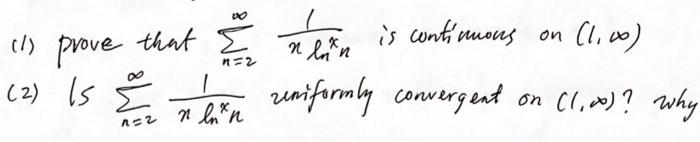 (1) prove that ∑_{n=2}^{∞} 1/(n ln^x n) is continuous on (1, ∞)
(2) Is ∑_{n=2}^{∞} 1/(n ln^x n) uniformly convergent on (1, ∞)? why